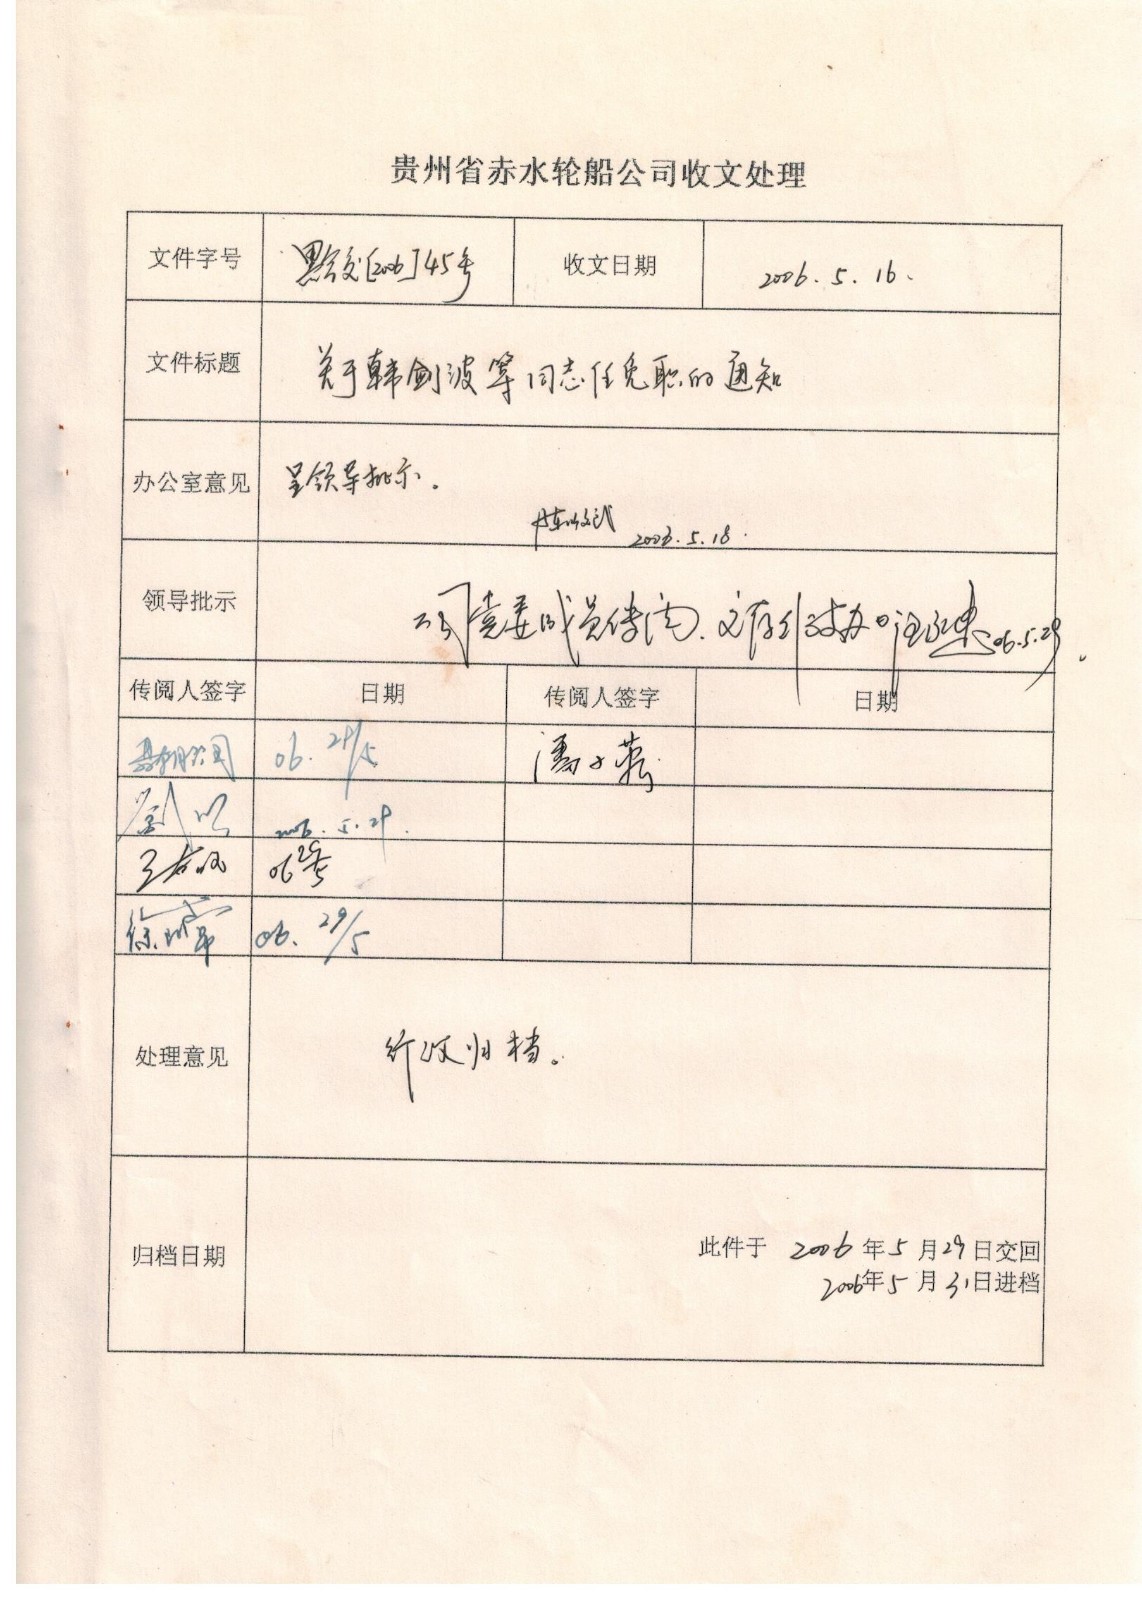 贵州省赤水轮船公司收文处理
文件字号 黔交[2006]45号 收文日期 2006.5.16.
文件标题 关于韩剑波等同志任免职的通知
办公室意见 呈领导批示。
2006.5.18.
领导批示 公司党委成员传阅、文存行政办 06.5.29.
传阅人签字 日期 传阅人签字 日期
06. 29/5
刘 2006.5.29.
王 06 29/5
徐 06. 29/5
处理意见 行政归档。
归档日期 此件于 2006 年 5 月 29 日交回
2006年 5 月 31日进档